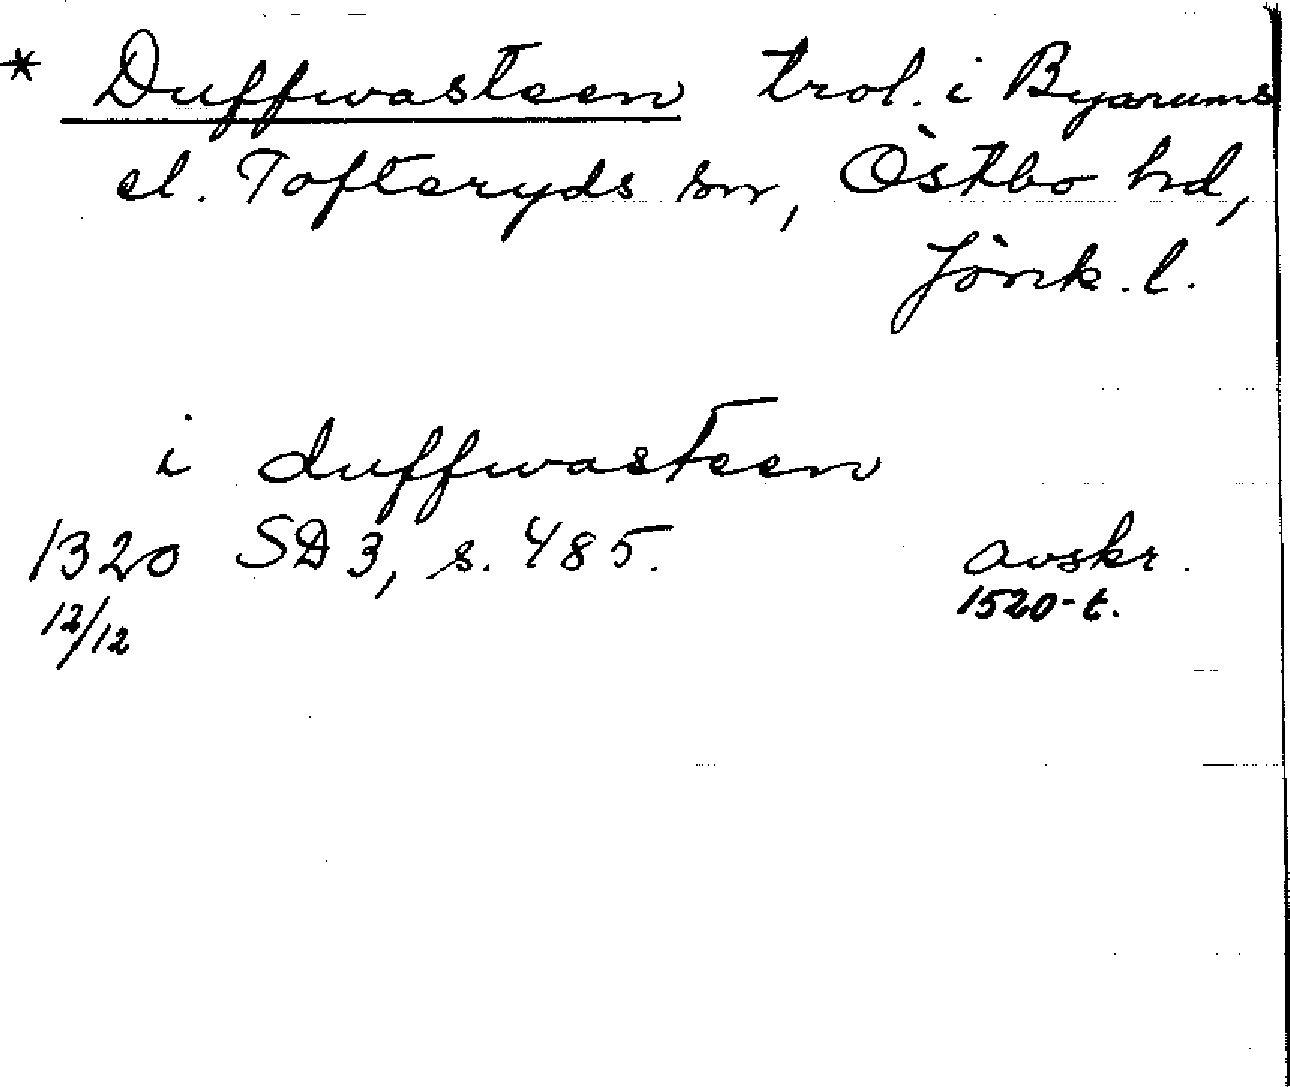 * Duffwasteen trol. i Byarums
el. Tofteryds sn, Östbo hd,
Jönk. l.
i duffwasteen
1320 SD 3, s. 485. avskr.
12/12 1520-t.